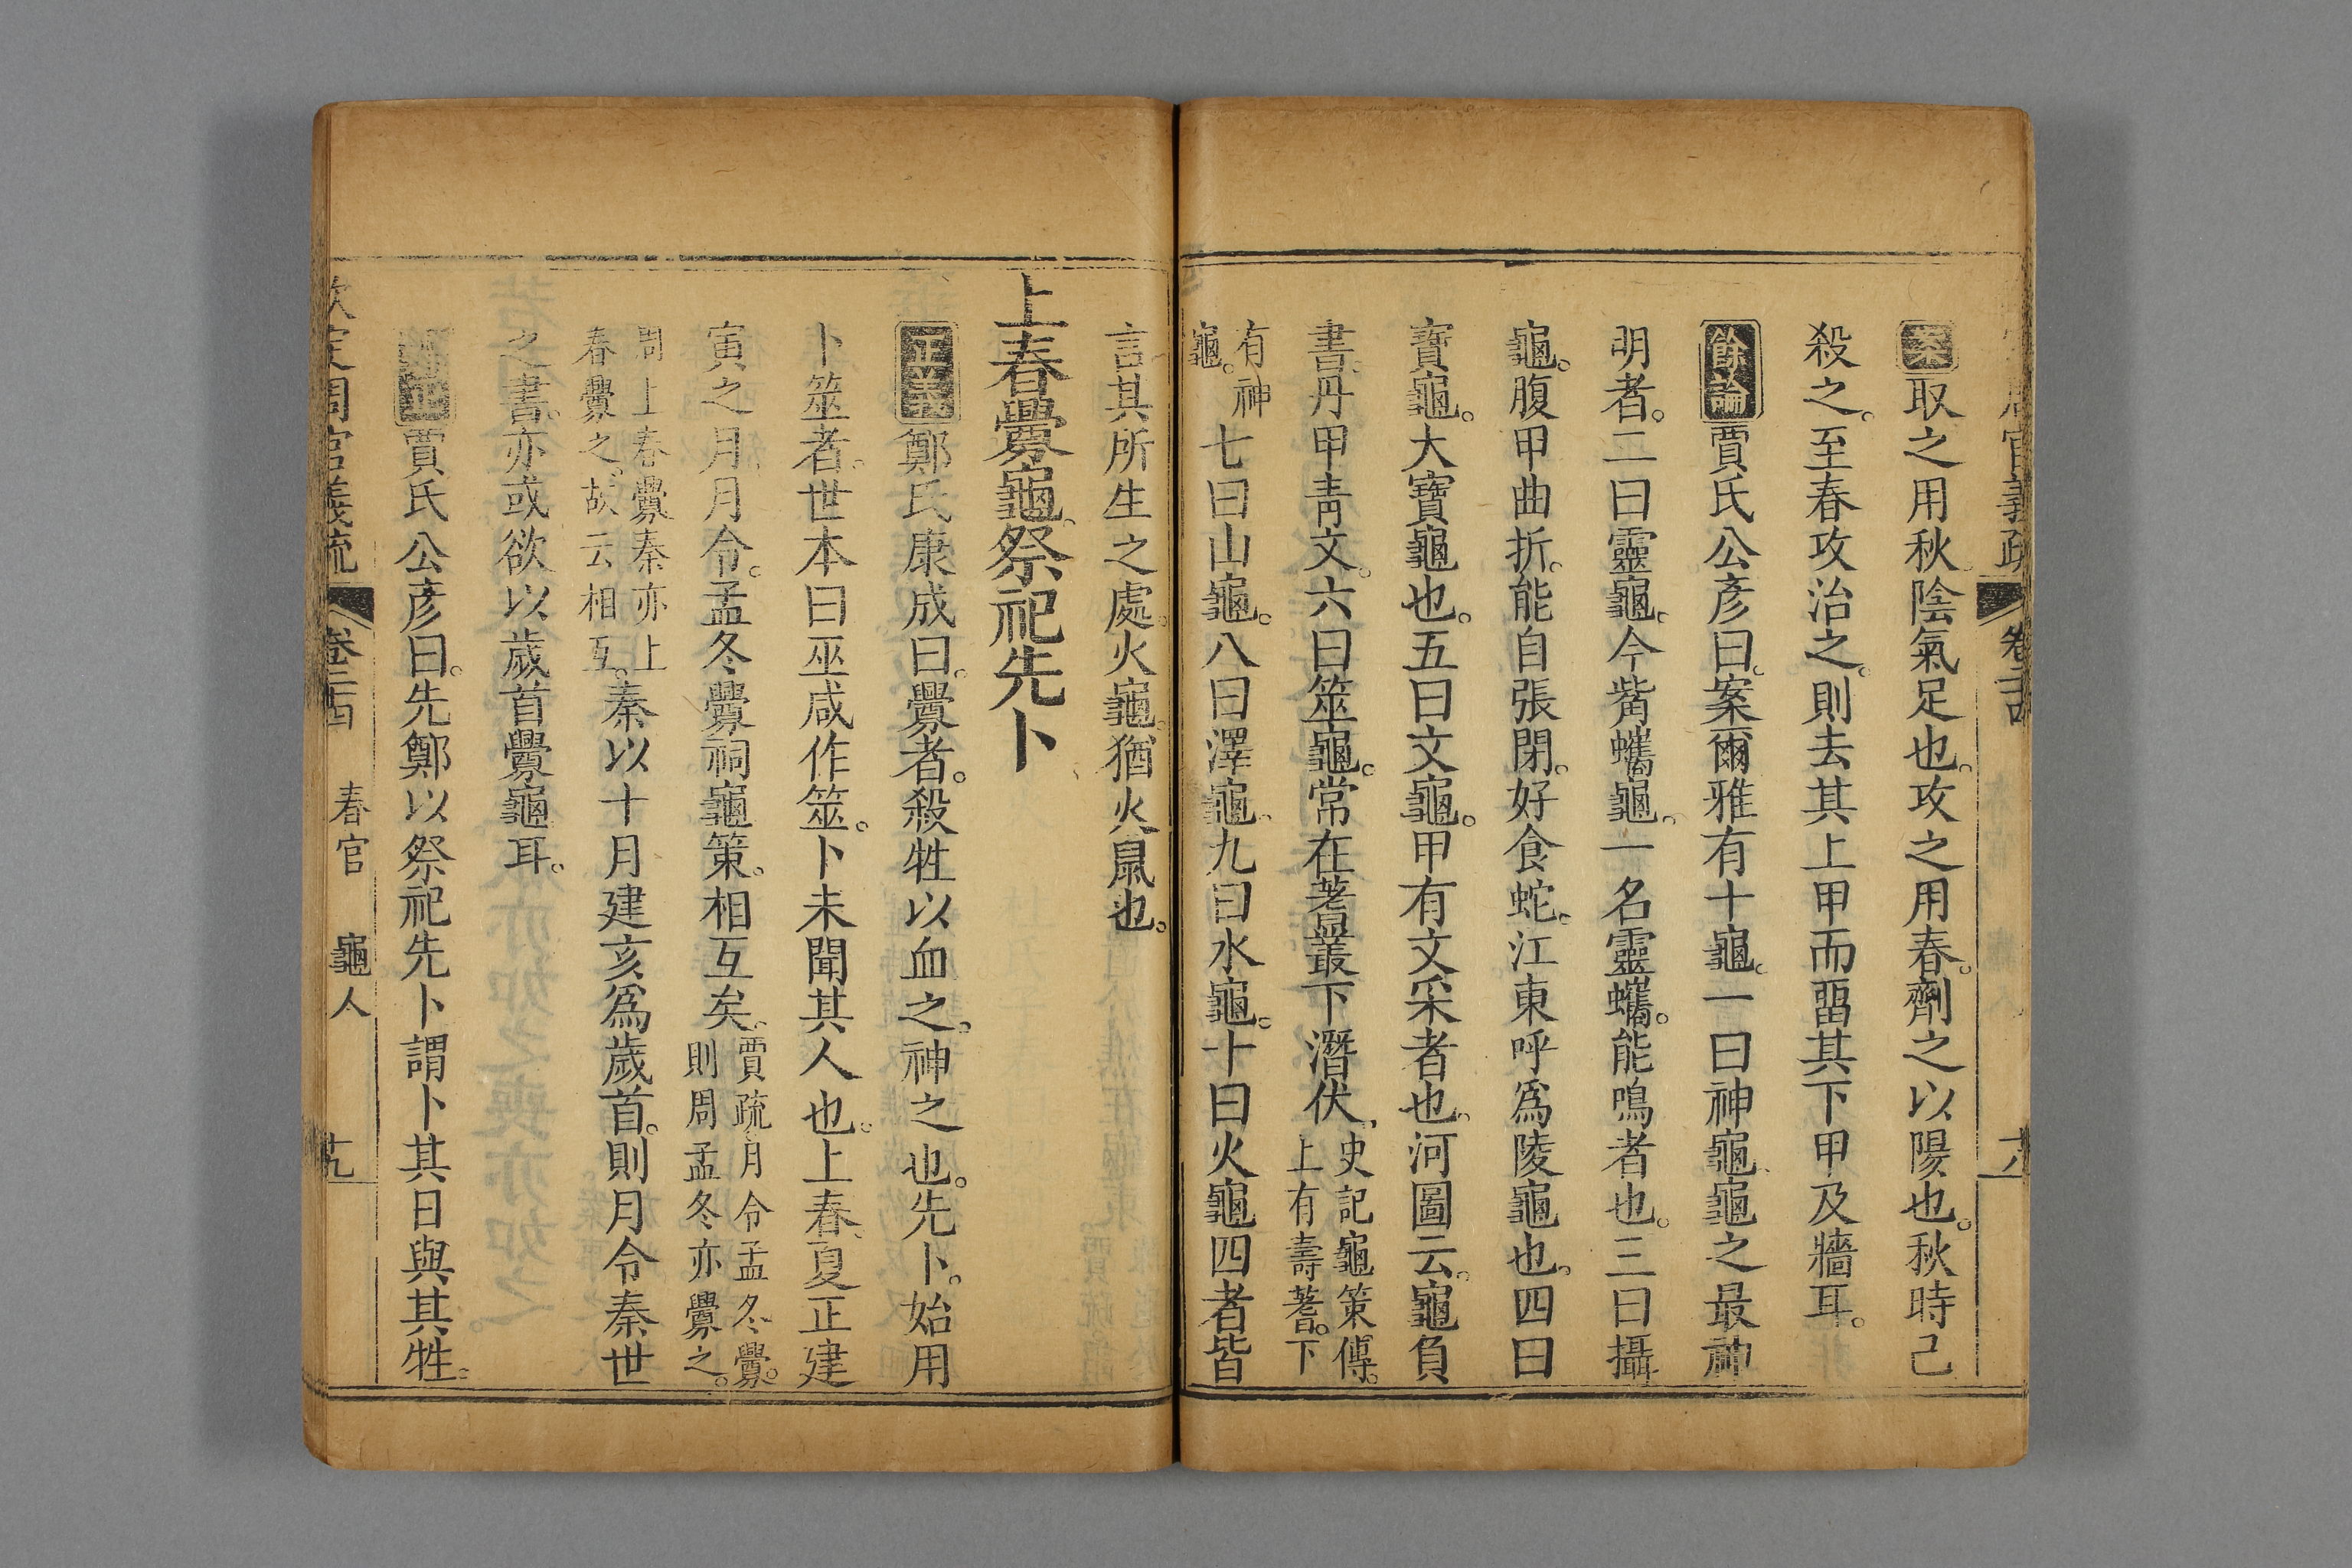 官義疏 卷二十四 十八
案取之用秋陰氣足也攻之用春劑之以陽也秋時己
殺之至春攻治之則去其上甲而畱其下甲及牆耳
餘論賈氏公彥曰案爾雅有十龜一曰神龜龜之最神
明者二曰靈龜今觜蠵龜一名靈蠵能鳴者也三曰攝
龜腹甲曲折能自張閉好食蛇江東呼爲陵龜也四曰
寶龜大寶龜也五曰文龜甲有文采者也河圖云龜負
書丹甲靑文六曰筮龜常在蓍叢下潛伏史記龜策傳上有壽蓍下
有神龜七曰山龜八曰澤龜九曰水龜十曰火龜四者皆
言其所生之處火龜猶火鼠也
上春釁龜祭祀先卜
正義鄭氏康成曰釁者殺牲以血之神之也先卜始用
卜筮者世本曰巫咸作筮卜未聞其人也上春夏正建
寅之月月令孟冬釁祠龜策相互矣賈疏月令孟冬釁則周孟冬亦釁之
周上春釁秦亦上春釁之故云相互秦以十月建亥爲歲首則月令秦世
之書亦或欲以歲首釁龜耳
賈氏公彥曰先鄭以祭祀先卜謂卜其日與其牲
欽定周官義疏 卷二十四 春官 龜人 十九